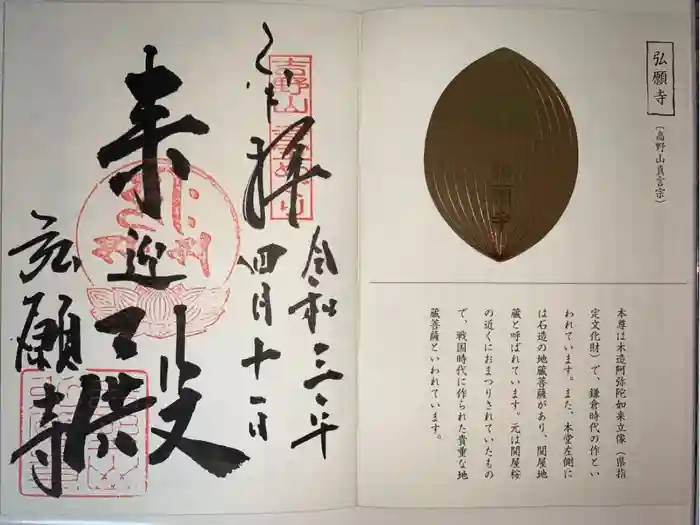 弘願寺
(高野山真言宗)
弘願寺
本尊は木造阿弥陀如来立像(県指
定文化財)で、鎌倉時代の作とい
われています。また、本堂左側に
は石造の地蔵菩薩があり、関屋地
蔵と呼ばれています。元は関屋桜
の近くにおまつりされていたもの
で、戦国時代に作られた貴重な地
蔵菩薩といわれています。
令和三年
四月十一日
奉拝
吉野山
来迎殿
弘願寺